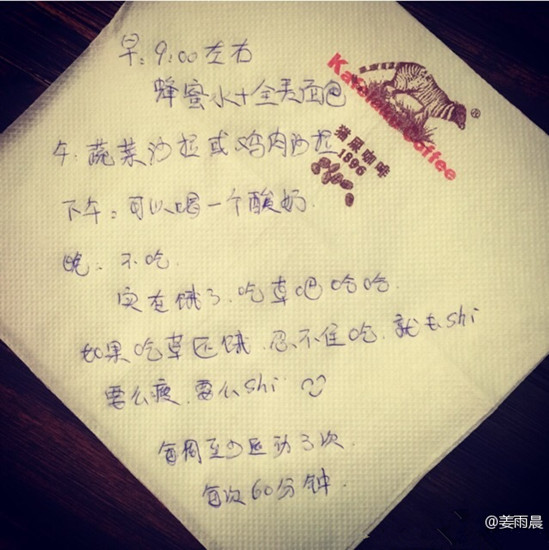 早：9:00左右
蜂蜜水+全麦面包
午：蔬菜沙拉或鸡肉沙拉
下午：可以喝一个酸奶.
晚：不吃.
实在饿了.吃草吧哈哈.
如果吃草还饿.忍不住吃.就去shi
要么瘦.要么shi
每周至少运动3次.
每次60分钟.
Coffee
猫屎咖啡
1896
®
@姜雨晨